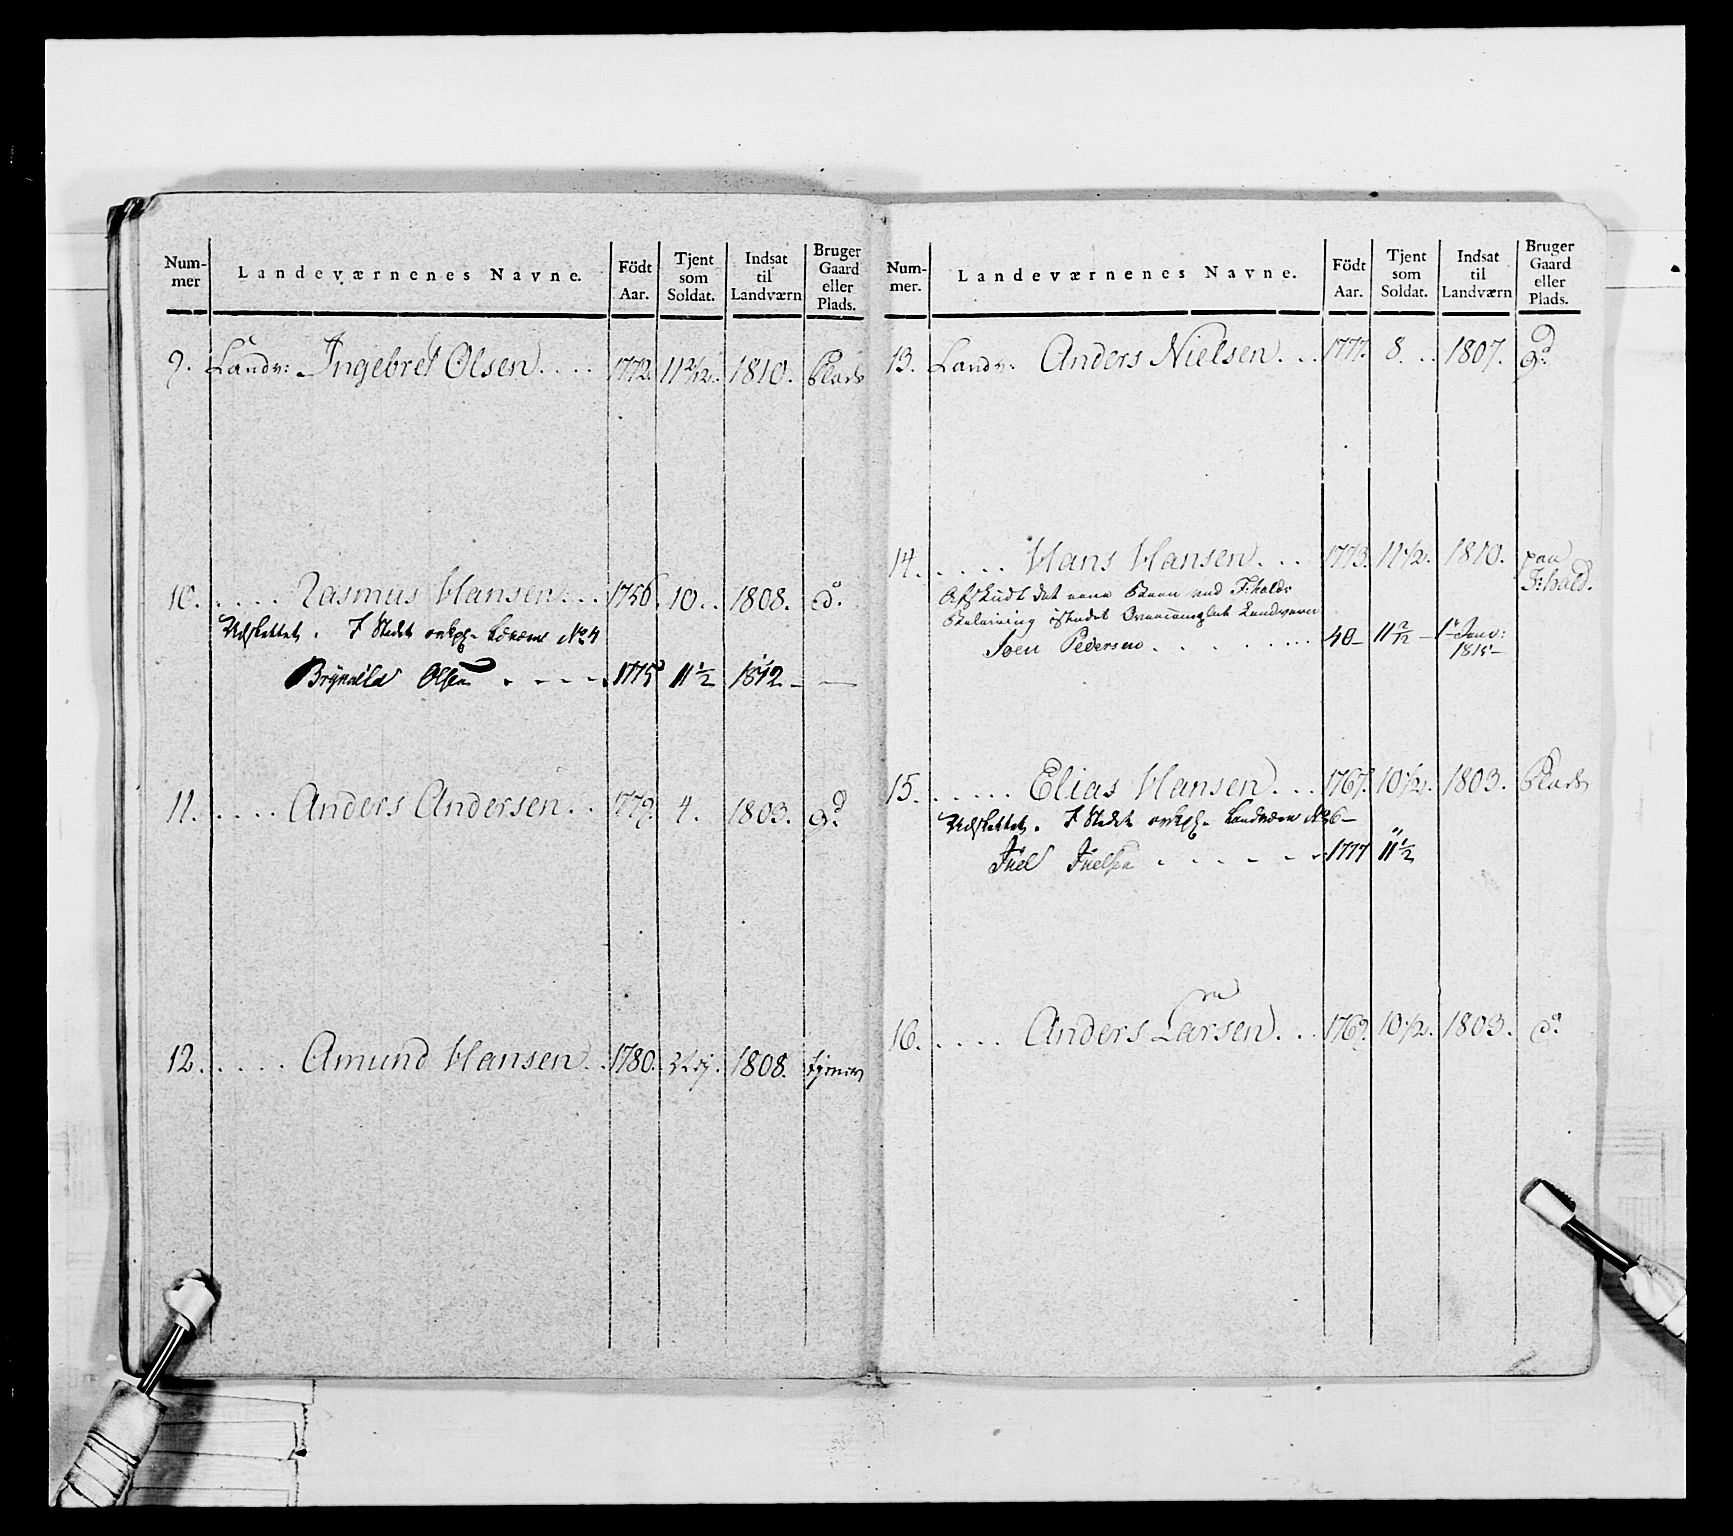 Num-
mer
Landeværnenes Navne.
Födt
Aar.
Tjent
som
Soldat.
Indsat
til
Landværn
Bruger
Gaard
eller
Plads.
9. Landv: Ingebret Olsen.... 1772. 11 2/12. 1810. Plads
10. .... Rasmus Hansen... 1756. 10.. 1808. do.
Udslettet. I Stedet Nº 4
Brynnild Olsen - - - - 1775 11 1/2 1812 - -
11. .... Anders Andersen.. 1779. 4. 1803. Gd.
12. .... Amund Hansen.. 1780. 1808.
Num-
mer.
Landeværnenes Navne.
Födt
Aar.
Tjent
som
Soldat.
Indsat
til
Landværn
Bruger
Gaard
eller
Plads.
13. Landv: Anders Nielsen... 1777. 8... 1807. Gd.
14. .... Hans Hansen... 1773. 11 1/2. 1810. paa
Afskudt det ene Been ved F:halds F:hald.
istædet Landværn
Soen Pedersen . . . . . . . 40 - 11 2/12 - 1r Janv:
1815 -
15. ..... Elias Hansen... 1767. 10 1/2. 1803. Plads
Udslettet. I Stedet Landværn Nº 6 -
Juel Juelsen - - - - - 1777 11 1/2
16. .... Anders Larsen... 1769. 10 1/2. 1803. do.